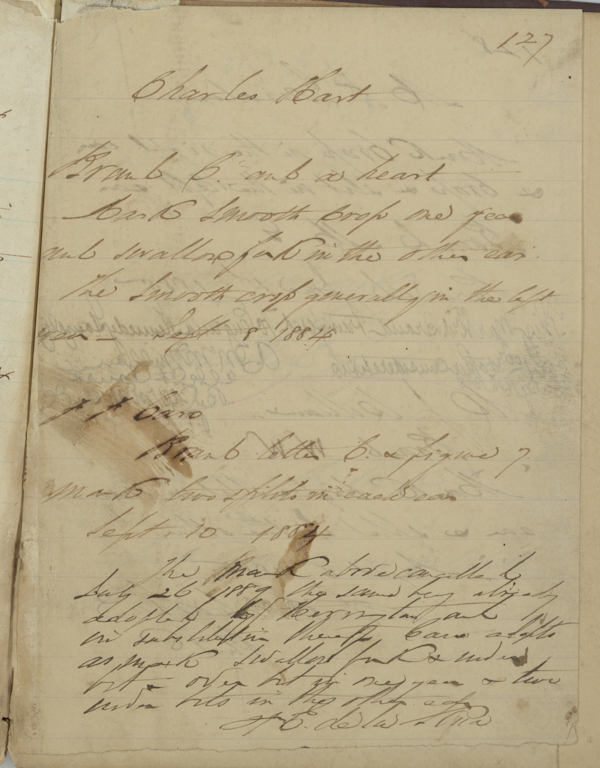 127
Charles Hart
Brand C. and a heart
Mark smooth crop one year
and swallow fork in the other ear.
The smooth crop generally in the left
year - Sept 8 1884
J. J. Caro
Brand letter C. & figure 7
mark two splits in each ear
Sept. 10 1884
The mark above cancelled
July 26 1889 the same being already
adopted by Herrington and
in substitution thereof Caro adopts
as mark swallow fork & under
bit - over bit in one year & two
under bits in the other ear
F. E. de la Rua